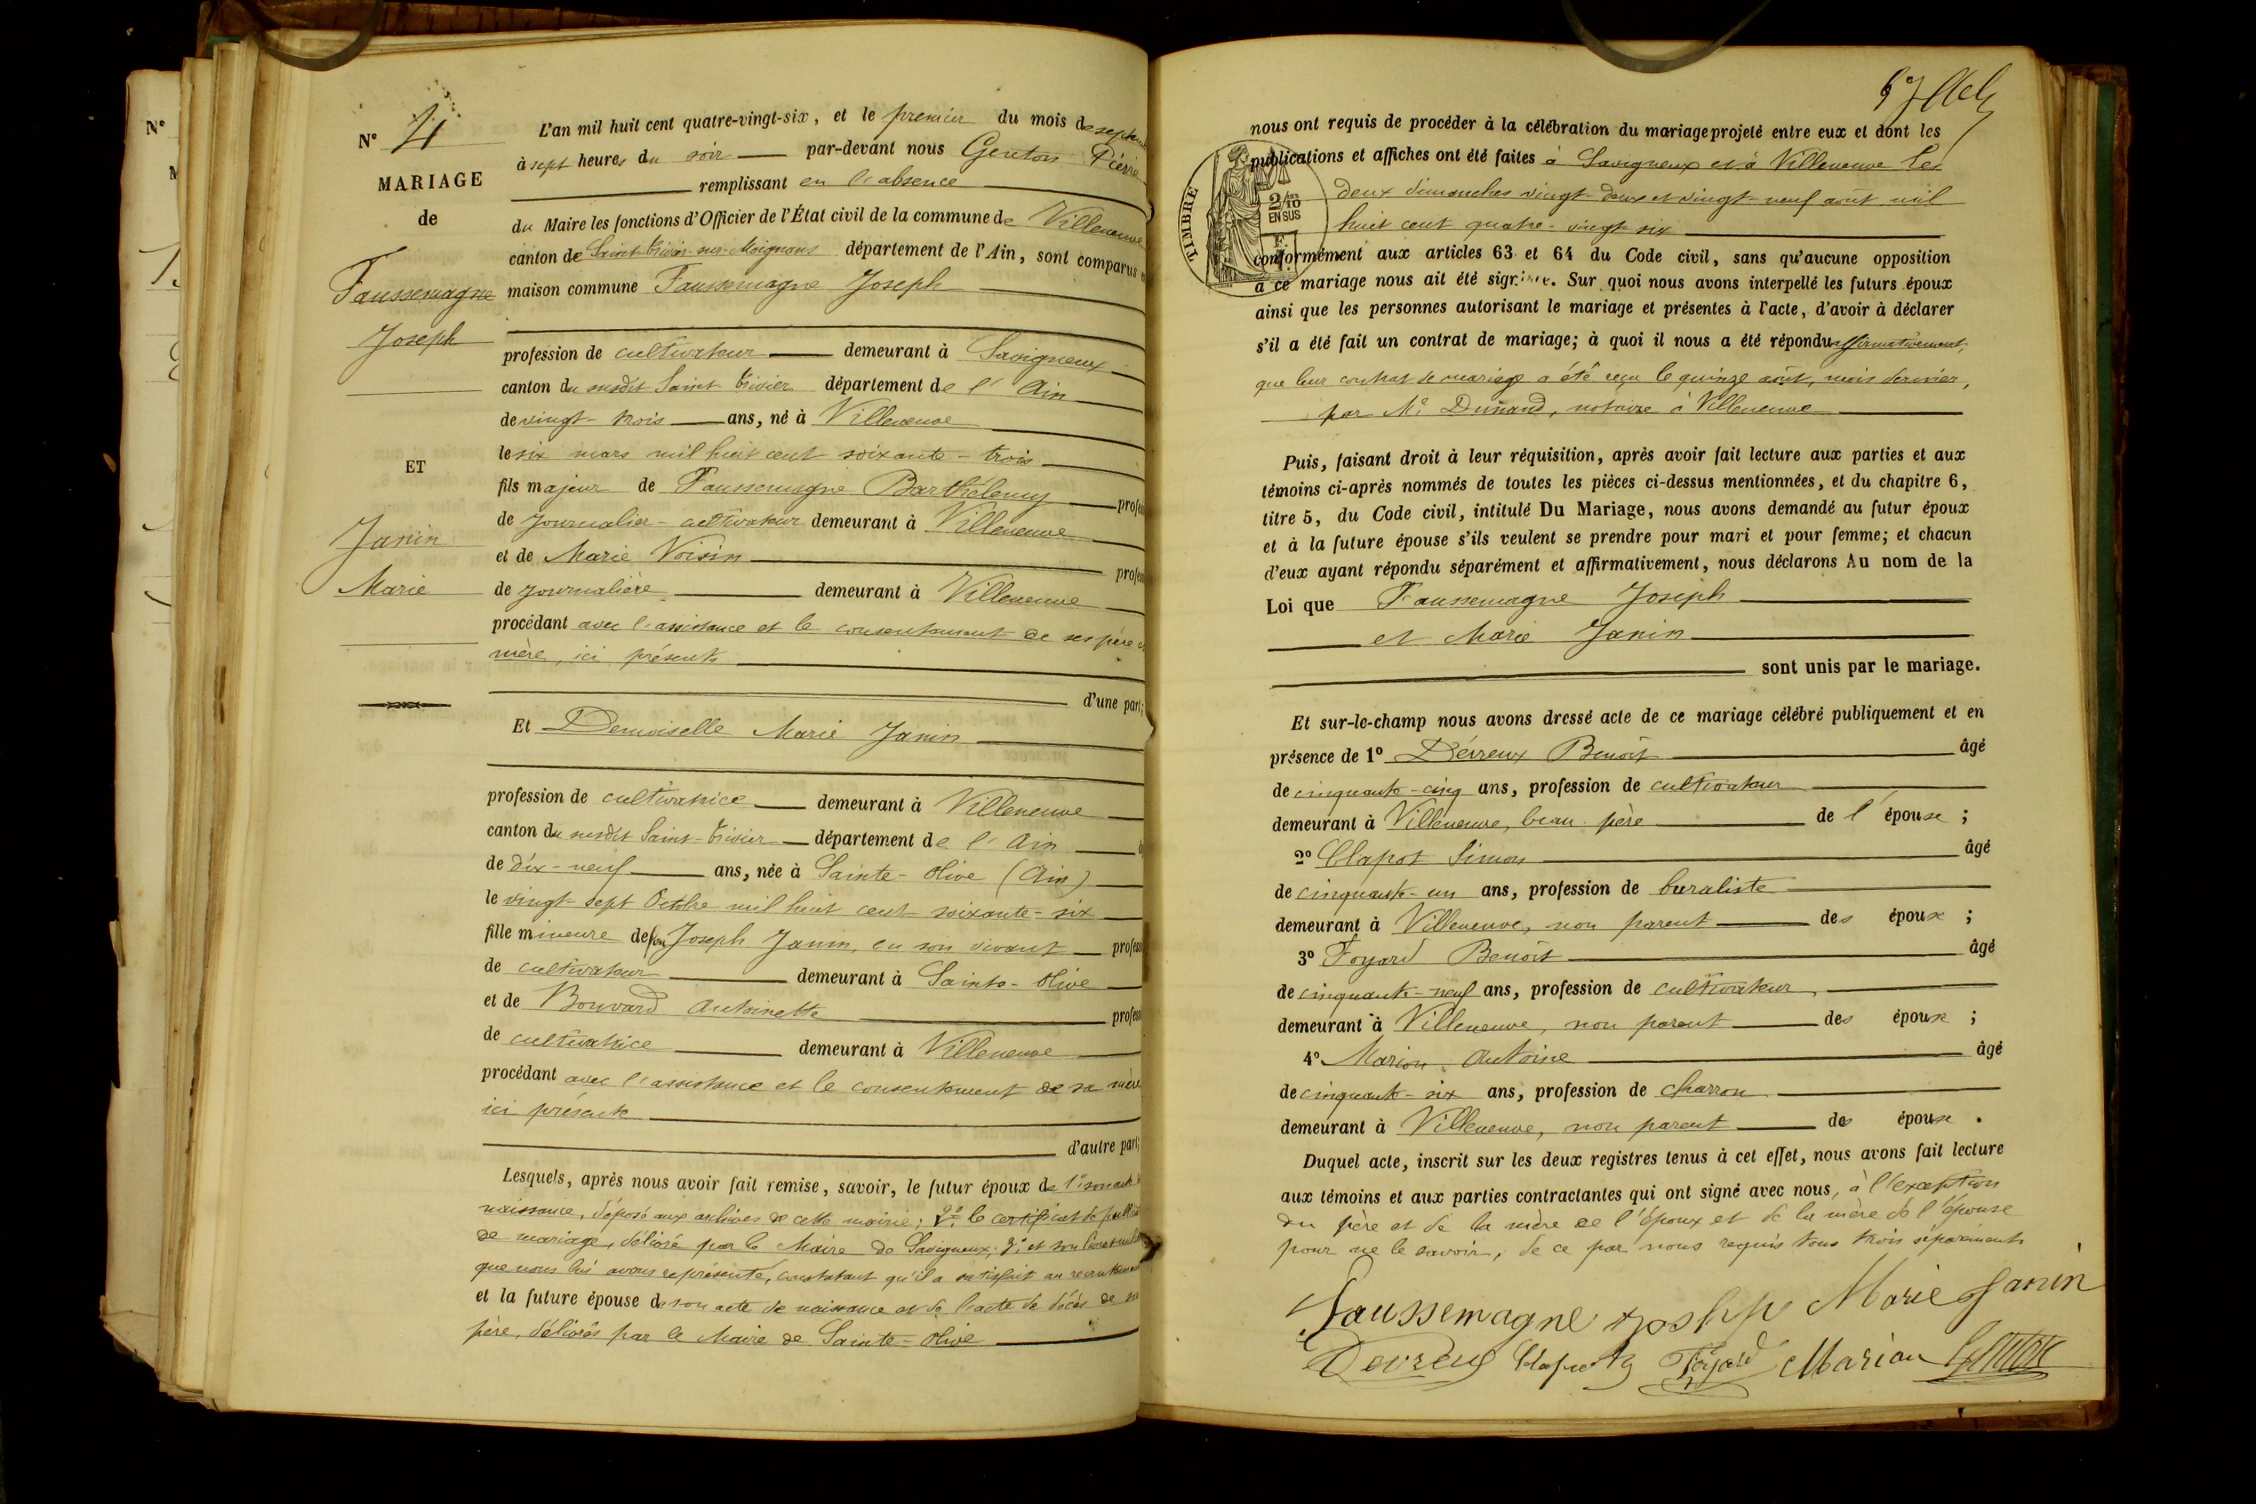 N° 4
MARIAGE
de
Faussemagne
Joseph
ET
Janin
Marie
L'an mil huit cent quatre-vingt-six, et le premier du mois de
à sept heures du soir par-devant nous Genton Pierre
remplissant en l'absence
du Maire les fonctions d'Officier de l'État civil de la commune de Villeneuve
canton de Saint-Trivier-sur-Moignans département de l'Ain, sont comparus
maison commune Faussemagne Joseph
profession de cultivateur demeurant à Savigneux
canton du susdit Saint-Trivier département de l'Ain
de vingt-trois ans, né à Villeneuve
le six mars mil huit cent soixante-trois
fils majeur de Faussemagne Barthélemy
de journalier-cultivateur demeurant à Villeneuve
et de Marie Voisin
de journalière demeurant à Villeneuve
procédant avec l'assistance et le consentement de ses père
mère, ici présents
d'une part;
Et Demoiselle Marie Janin
profession de cultivatrice demeurant à Villeneuve
canton du susdit Saint-Trivier département de l'Ain
de dix-neuf ans, née à Sainte-Olive (Ain)
le vingt-sept Octobre mil huit cent soixante-six
fille mineure de feu Joseph Janin, en son vivant
de cultivateur demeurant à Sainte-Olive
et de Bouvard Antoinette
de cultivatrice demeurant à Villeneuve
procédant avec l'assistance et le consentement de sa mère
ici présente
d'autre part;
Lesquels, après nous avoir fait remise, savoir, le futur époux de 1° son acte
naissance, déposé aux archives de cette mairie; 2° le certificat de
de mariage, délivré par le Maire de Savigneux; 3° et son livret
que nous lui avons représenté, constatant qu'il a satisfait au
et la future épouse de son acte de naissance et de l'acte de décès de
père, délivrés par le Maire de Sainte-Olive
nous ont requis de procéder à la célébration du mariage projeté entre eux et dont les
publications et affiches ont été faites à Savigneux et à Villeneuve les
deux dimanches vingt-deux et vingt-neuf août mil
huit cent quatre-vingt-six
TIMBRE
2/10
EN SUS
conformément aux articles 63 et 64 du Code civil, sans qu'aucune opposition
à ce mariage nous ait été signifiée. Sur quoi nous avons interpellé les futurs époux
ainsi que les personnes autorisant le mariage et présentes à l'acte, d'avoir à déclarer
s'il a été fait un contrat de mariage; à quoi il nous a été répondu affirmativement,
que leur contrat de mariage a été reçu le quinze août, mois dernier,
par Me Dunand, notaire à Villeneuve
Puis, faisant droit à leur réquisition, après avoir fait lecture aux parties et aux
témoins ci-après nommés de toutes les pièces ci-dessus mentionnées, et du chapitre 6,
titre 5, du Code civil, intitulé Du Mariage, nous avons demandé au futur époux
et à la future épouse s'ils veulent se prendre pour mari et pour femme; et chacun
d'eux ayant répondu séparément et affirmativement, nous déclarons Au nom de la
Loi que Faussemagne Joseph
et Marie Janin
sont unis par le mariage.
Et sur-le-champ nous avons dressé acte de ce mariage célébré publiquement et en
présence de 1° Dévreux Benoît âgé
de cinquante-cinq ans, profession de cultivateur
demeurant à Villeneuve, beau-père de l'épouse;
2° Clapot Simon âgé
de cinquante-un ans, profession de buraliste
demeurant à Villeneuve, non parent des époux;
3° Foyard Benoît âgé
de cinquante-neuf ans, profession de cultivateur,
demeurant à Villeneuve, non parent des époux;
4° Marion Antoine âgé
de cinquante-six ans, profession de charron
demeurant à Villeneuve, non parent des époux.
Duquel acte, inscrit sur les deux registres tenus à cet effet, nous avons fait lecture
aux témoins et aux parties contractantes qui ont signé avec nous, à l'exception
du père et de la mère de l'époux et de la mère de l'épouse
pour ne le savoir, de ce par nous requis tous trois séparément
Faussemagne Joseph Marie Janin
Devreux Clapot Foyard Marion Genton